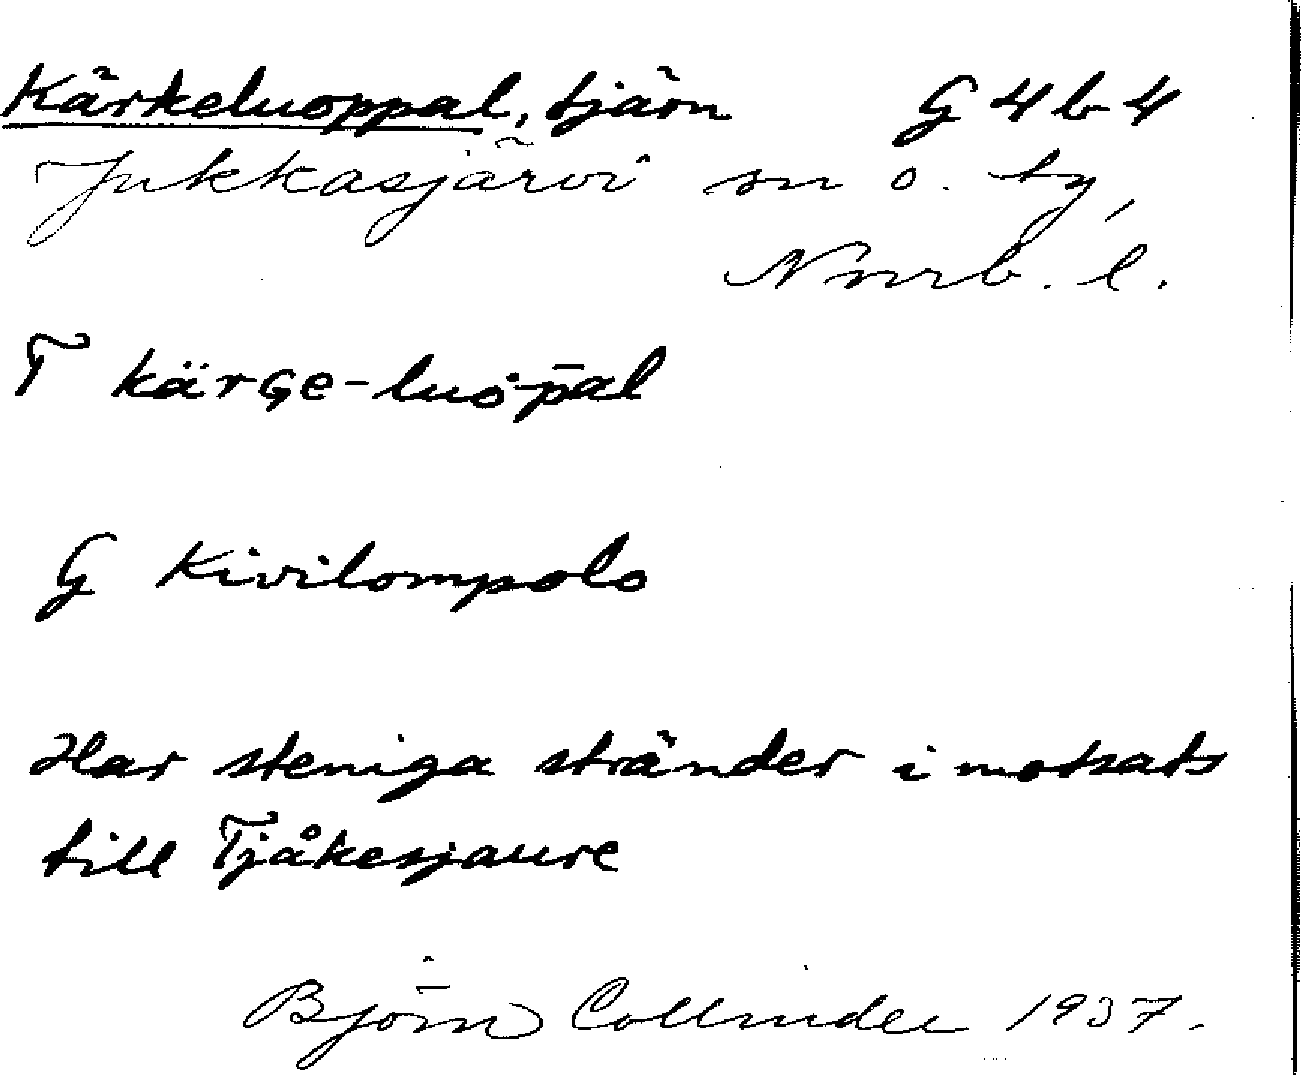 Kärkeluoppal, tjärn G 4 b 4
Jukkasjärvi sn o. ty,
Norrb. l.
T kärGe-luo·p̄al
G Kivilompolo
Har steniga stränder i motsats
till Tjåkesjaure
Björn Collinder 1937.